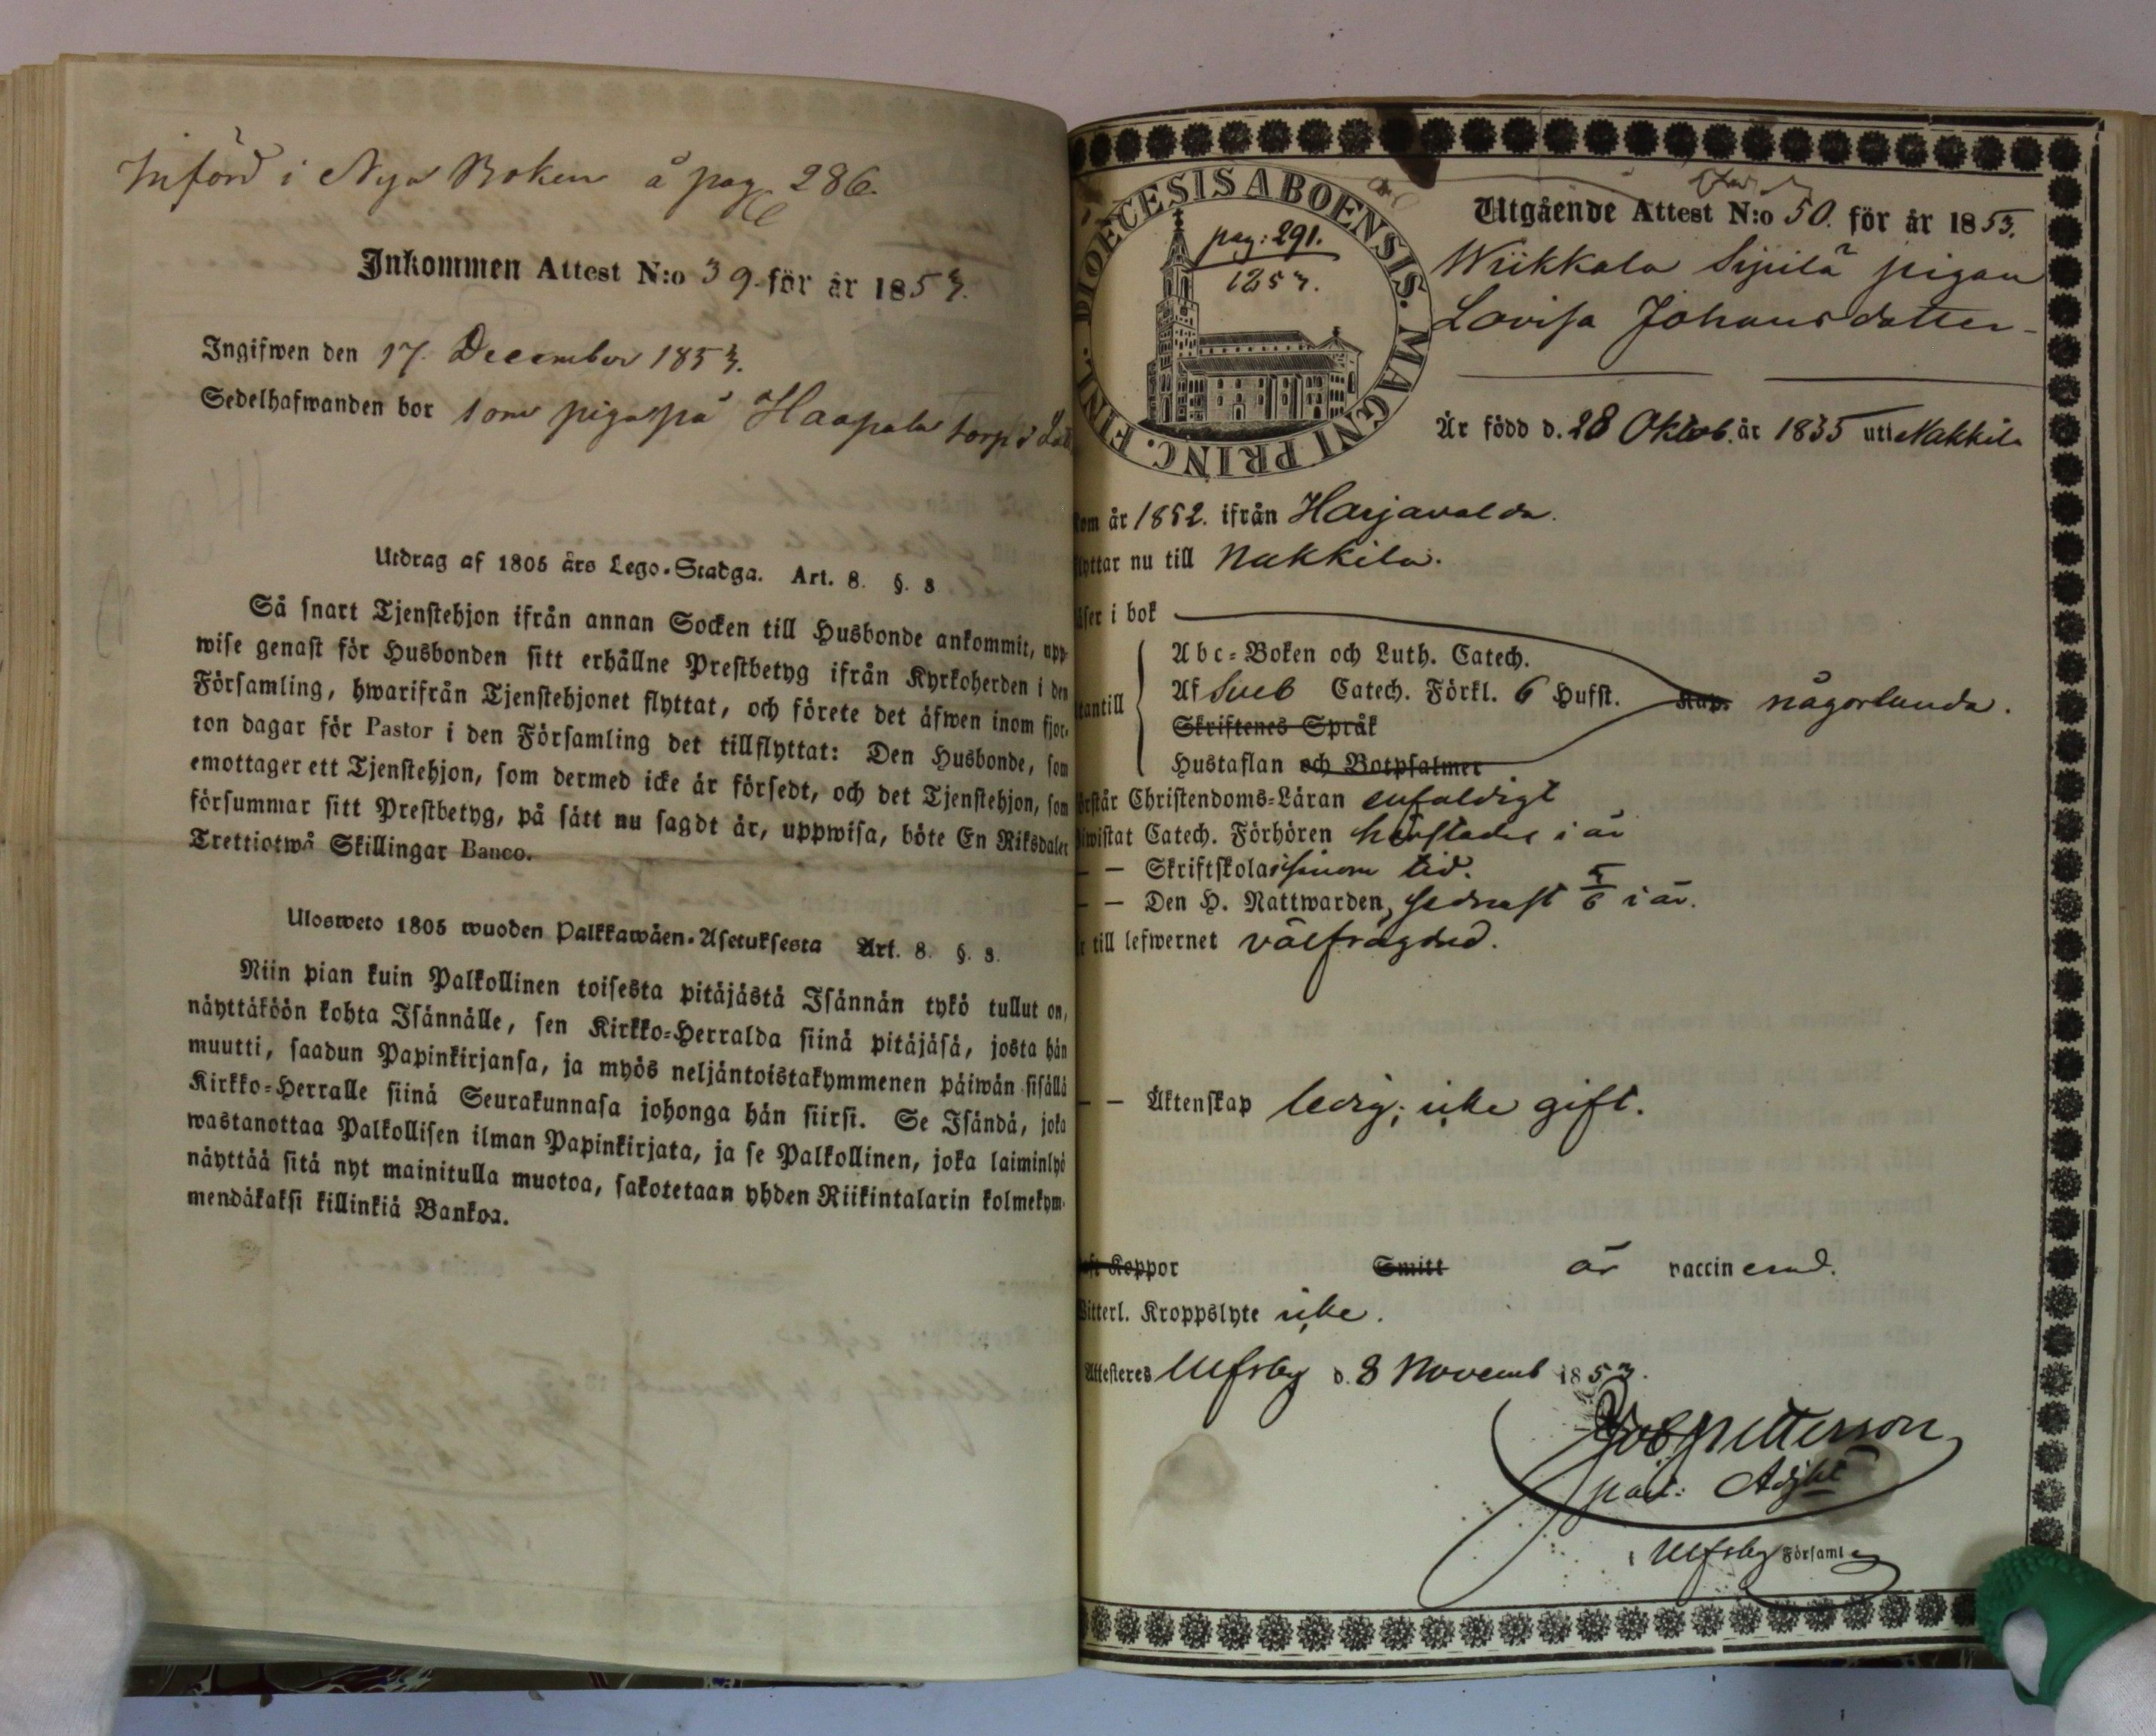 Införd i Nya Boken å pag. 286.
Inkommen Attest N:o 39. för år 1853.
Ingifwen den 17. December 1853.
Sedelhafwanden bor som piga på Haapala torp i
Utdrag af 1805 års Lego-Stadga. Art. 8. §. 8
Så snart Tjenstehjon ifrån annan Socken till Husbonde ankommit, upp-
wise genast för Husbonden sitt erhållne Prestbetyg ifrån Kyrkoherden i den
Församling, hwarifrån Tjenstehjonet flyttat, och förete det äfwen inom fjor-
ton dagar för Pastor i den Församling det tillflyttat: Den Husbonde, som
emottager ett Tjenstehjon, som dermed icke är försedt, och det Tjenstehjon, som
försummar sitt Prestbetyg, på sätt nu sagdt är, uppwisa, böte En Riksdaler
Trettiotwå Skillingar Banco.
Ulosweto 1805 wuoden Palkkawäen-Asetuksesta Art. 8. §. 8.
Niin pian kuin Palkollinen toisesta pitäjästä Isännän tykö tullut on,
näyttäköön kohta Isännälle, sen Kirkko-Herralda siinä pitäjäsä, josta hän
muutti, saadun Papinkirjansa, ja myös neljäntoistakymmenen päiwän sisällä
Kirkko-Herralle siinä Seurakunnasa johonga hän siirsi. Se Isändä, joka
wastanottaa Palkollisen ilman Papinkirjata, ja se Palkollinen, joka laiminlyö
näyttää sitä nyt mainitulla muotoa, sakotetaan yhden Riikintalarin kolmekym-
mendäkaksi killinkiä Bankoa.
DIOECESIS ABOENSIS. MAGNI PRINC. FINL.
pag: 291.
1853.
Utgående Attest N:o 50. för år 1853.
Wiikkala Sipilä pigan
Lovisa Johansdotter
Är född d. 28 Oktob. år 1835 uti Nakkila
kom år 1852. ifrån Harjavalda.
flyttar nu till Nakkila.
läser i bok
utantill
Abc-Boken och Luth. Catech.
Af Sveb Catech. Förkl. 6 Hufst. någorlunda.
Skriftenes Språk
Hustaflan och Botpsalmer
förstår Christendoms-Läran enfaldigt
biwistat Catech. Förhören härstädes i år
— — Skriftskolan i sinom tid.
— — Den H. Nattwarden, sednast 5/6 i år.
är till lefwernet välfrägdad.
— — Äktenskap ledig; icke gift.
haft Koppor Smitt är vaccinerad.
Witterl. Kroppslyte icke.
Attesteres Ulfsby d. 8 Novemb 1853.
Petterson
past: Adjkt
i Ulfsby Församl